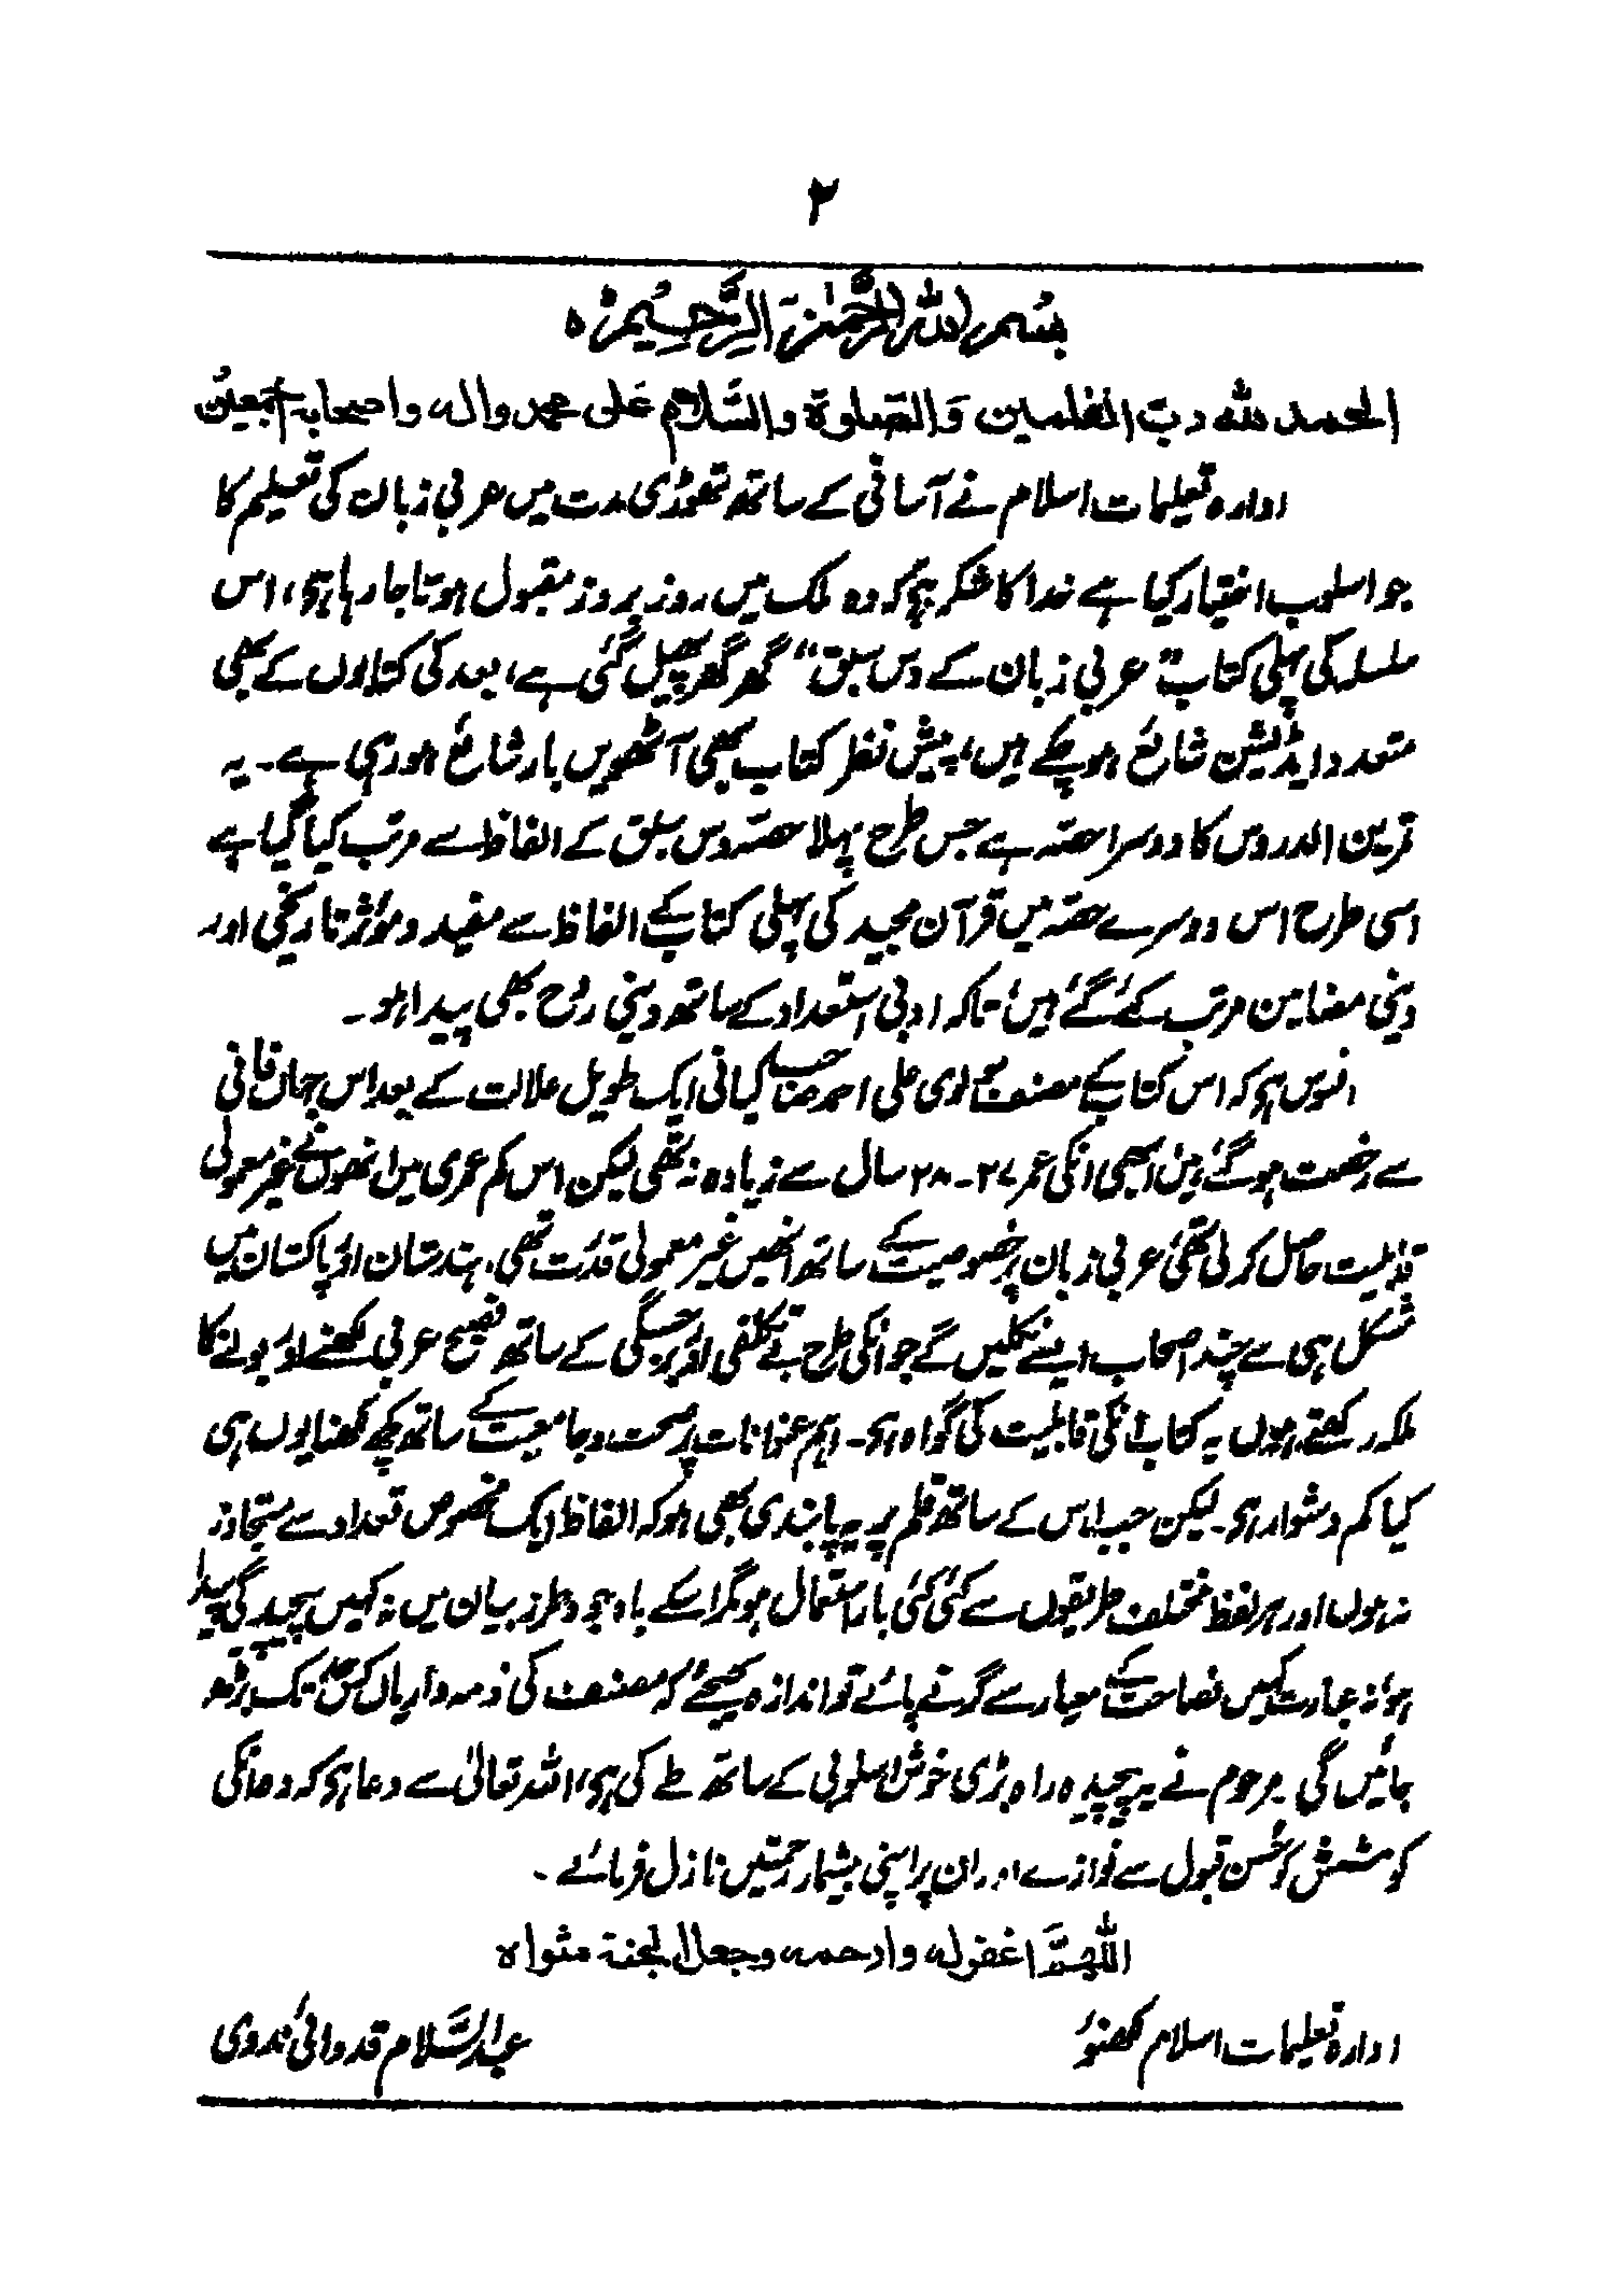 ۲
بسم الله الرحمن الرحيم ہ
الحمد لله رب العٰلمين وَالصلوة والسَّلام عَلى محمد واله واصحابه اجمعين
ادارہ تعلیمات اسلام نے آسانی کے ساتھ تھوڑی مدت میں عربی زبان کی تعلیم کا
جو اسلوب اختیار کیا ہے خدا کا شکر ہے کہ وہ ملک میں روز بروز مقبول ہوتا جا رہا ہے، اس
سلسلہ کی پہلی کتاب "عربی زبان کے دس سبق" گھر گھر پھیل گئی ہے، بعد کی کتابوں کے بھی
متعدد ایڈیشن شائع ہو چکے ہیں، پیش نظر کتاب بھی آٹھویں بار شائع ہو رہی ہے۔ یہ
تمرین الدروس کا دوسرا حصہ ہے جس طرح پہلا حصہ دس سبق کے الفاظ سے مرتب کیا گیا ہے
اسی طرح اس دوسرے حصہ میں قرآن مجید کی پہلی کتاب کے الفاظ سے مفید و موثر تاریخی اور
دینی مضامین مرتب کئے گئے ہیں، تاکہ ادبی استعداد کے ساتھ دینی روح بھی پیدا ہو۔
افسوس ہے کہ اس کتاب کے مصنف مولوی علی احمد صاحب کیانی ایک طویل علالت کے بعد اس جہان فانی
سے رخصت ہو گئے ہیں ابھی انکی عمر ۲۷-۲۸ سال سے زیادہ نہ تھی لیکن اس کم عمری میں انھوں نے غیر معمولی
قابلیت حاصل کر لی تھی، عربی زبان پر خصوصیت کے ساتھ انھیں غیر معمولی قدرت تھی، ہندستان اور پاکستان میں
مشکل ہی سے چند اصحاب ایسے نکلیں گے جو انکی طرح بے تکلفی اور برجستگی کے ساتھ فصیح عربی لکھنے اور بولنے کا
ملکہ رکھتے ہوں یہ کتاب انکی قابلیت کی گواہ ہے۔ اہم عنوانات پر صحت و جامعیت کے ساتھ کچھ لکھنا یوں ہی
کیا کم دشوار ہے۔ لیکن جب اس کے ساتھ قلم پر یہ پابندی بھی ہو کہ الفاظ ایک مخصوص تعداد سے متجاوز
نہ ہوں اور ہر لفظ مختلف طریقوں سے کئی کئی بار استعمال ہو مگر اسکے باوجود طرز بیان میں نہ کہیں پیچیدگی پیدا
ہو، نہ عبارت کہیں فصاحت کے معیار سے گرنے پائے تو اندازہ کیجئے کہ مصنف کی ذمہ داریاں کس حد تک بڑھ
جائیں گی۔ مرحوم نے یہ پیچیدہ راہ بڑی خوش اسلوبی کے ساتھ طے کی ہے، اللہ تعالیٰ سے دعا ہے کہ وہ انکی
کوشش کو حُسن قبول سے نوازے اور ان پر اپنی بیشمار رحمتیں نازل فرمائے۔
اللهمَّ اغفر له وارحمه وجعل الجنة مثواه
ادارہ تعلیمات اسلام لکھنؤ
عبدالسَّلام قدوائی ندوی